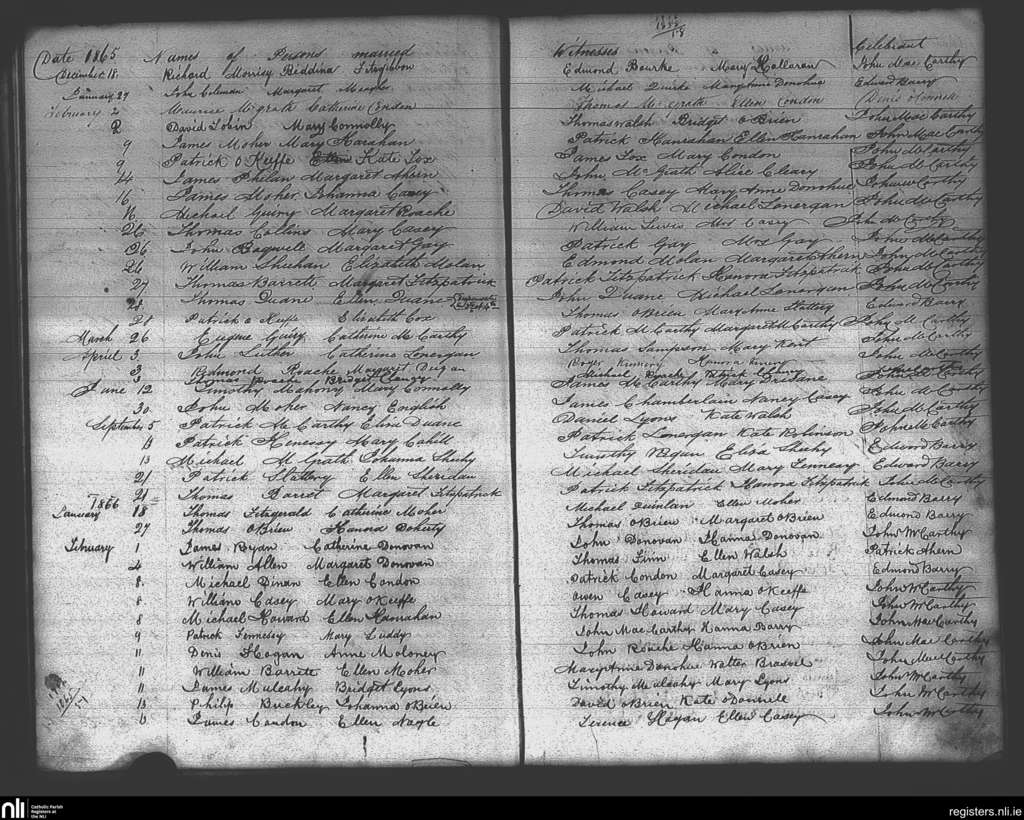 1865/18
Date 1865 Names of Persons married Witnesses Celebrant
December 18 Richard Morrisy Biddina Fitzgibbon Edmond Bourke Mary Halloran John Mac Carthy
January 29 John Coleman Margaret Meagher Michael Quirke Mary Anne Donohue Edward Barry
February 2 Maurice McGrath Catherine Condon Thomas McGrath Ellen Condon Denis
2 David Tobin Mary Connolly Thomas Walsh Bridget O Brien John Mac Carthy
9 James Moher Mary Harahan Patrick Hanrahan Ellen Hanrahan John Mac Carthy
9 Patrick O Keeffe Kate Fox James Fox Mary Condon John McCarthy
14 James Phelan Margaret Ahern John McGrath Alice Cleary John McCarthy
16 James Moher Johanna Casey Thomas Casey Mary Anne Donohue John McCarthy
16 Michael Guiry Margaret Roache David Walsh Michael Lonergan John McCarthy
26 Thomas Collins Mary Casey William Lewis Mrs Casey John McCarthy
26 John Bagwell Margaret Gay Patrick Gay Mrs Gay John McCarthy
26 William Sheehan Elizabeth Nolan Edmond Nolan Margaret Ahern John McCarthy
27 Thomas Barrett Margaret Fitzpatrick Patrick Fitzpatrick Hanora Fitzpatrick John McCarthy
28 Thomas Duane Ellen Duane John Duane Michael Lonergan John McCarthy
28 Patrick O Keeffe Elizabeth Cox Thomas OBrien Mary Anne Slattery Edward Barry
March 26 Eugene Guiry Catherine McCarthy Patrick McCarthy Margaret McCarthy John McCarthy
April 3 John Luther Catherine Lonergan Thomas Sampson Mary Kent John McCarthy
3 Edmond Roache Margaret Duigan Roger Kimiery Honora Kimiery John McCarthy
3 Thomas Roache Bridget Clancy Michael Roache Patrick John McCarthy
June 12 Timothy Mahony Mary Connolly James McCarthy Mary Drislane John McCarthy
30 John Moher Nancy English James Chamberlain Nancy Casey John McCarthy
September 5 Patrick McCarthy Eliza Duane Daniel Lyons Kate Walsh John McCarthy
11 Patrick Henessy Mary Cahill Patrick Lonergan Kate Robinson John McCarthy
13 Michael McGrath Johanna Sheehy Timothy Regan Eliza Sheehy Edward Barry
21 Patrick Slattery Ellen Sheridan Michael Sheridan Mary Fennessy Edward Barry
21 Thomas Barret Margaret Fitzpatrick Patrick Fitzpatrick Hanora Fitzpatrick John McCarthy
1866
January 18 Thomas Fitzgerald Catherine Moher Michael Quinlan Ellen Moher Edmond Barry
27 Thomas OBrien Hanora Doherty Thomas OBrien Margaret OBrien Edmond Barry
February 1 James Ryan Catherine Donovan John Donovan Hanna Donovan John McCarthy
4 William Allen Margaret Donovan Thomas Finn Ellen Walsh Patrick Ahern
8 Michael Dinan Ellen Condon Patrick Condon Margaret Casey Edmond Barry
8 William Casey Mary O Keeffe Owen Casey Hanna O Keeffe John McCarthy
8 Michael Howard Ellen Hanrahan Thomas Howard Mary Casey John McCarthy
9 Patrick Fennessy Mary Luddy John Mac Carthy Hanna Barry John Mac Carthy
11 Denis Hogan Anne Moloney John Roache Hanna O Brien John Mac Carthy
11 William Barrett Ellen Moher Mary Anne Donohue Walter John Mac Carthy
11 James Mulcahy Bridget Lyons Timothy Mulcahy Mary Lyons John McCarthy
13 Philip Buckley Johanna O Brien David O Brien Kate O Donnell John McCarthy
13 James Condon Ellen Nagle Terence Hogan Ellen Casey John McCarthy
1865/17
nli Catholic Parish Registers at the NLI
registers.nli.ie